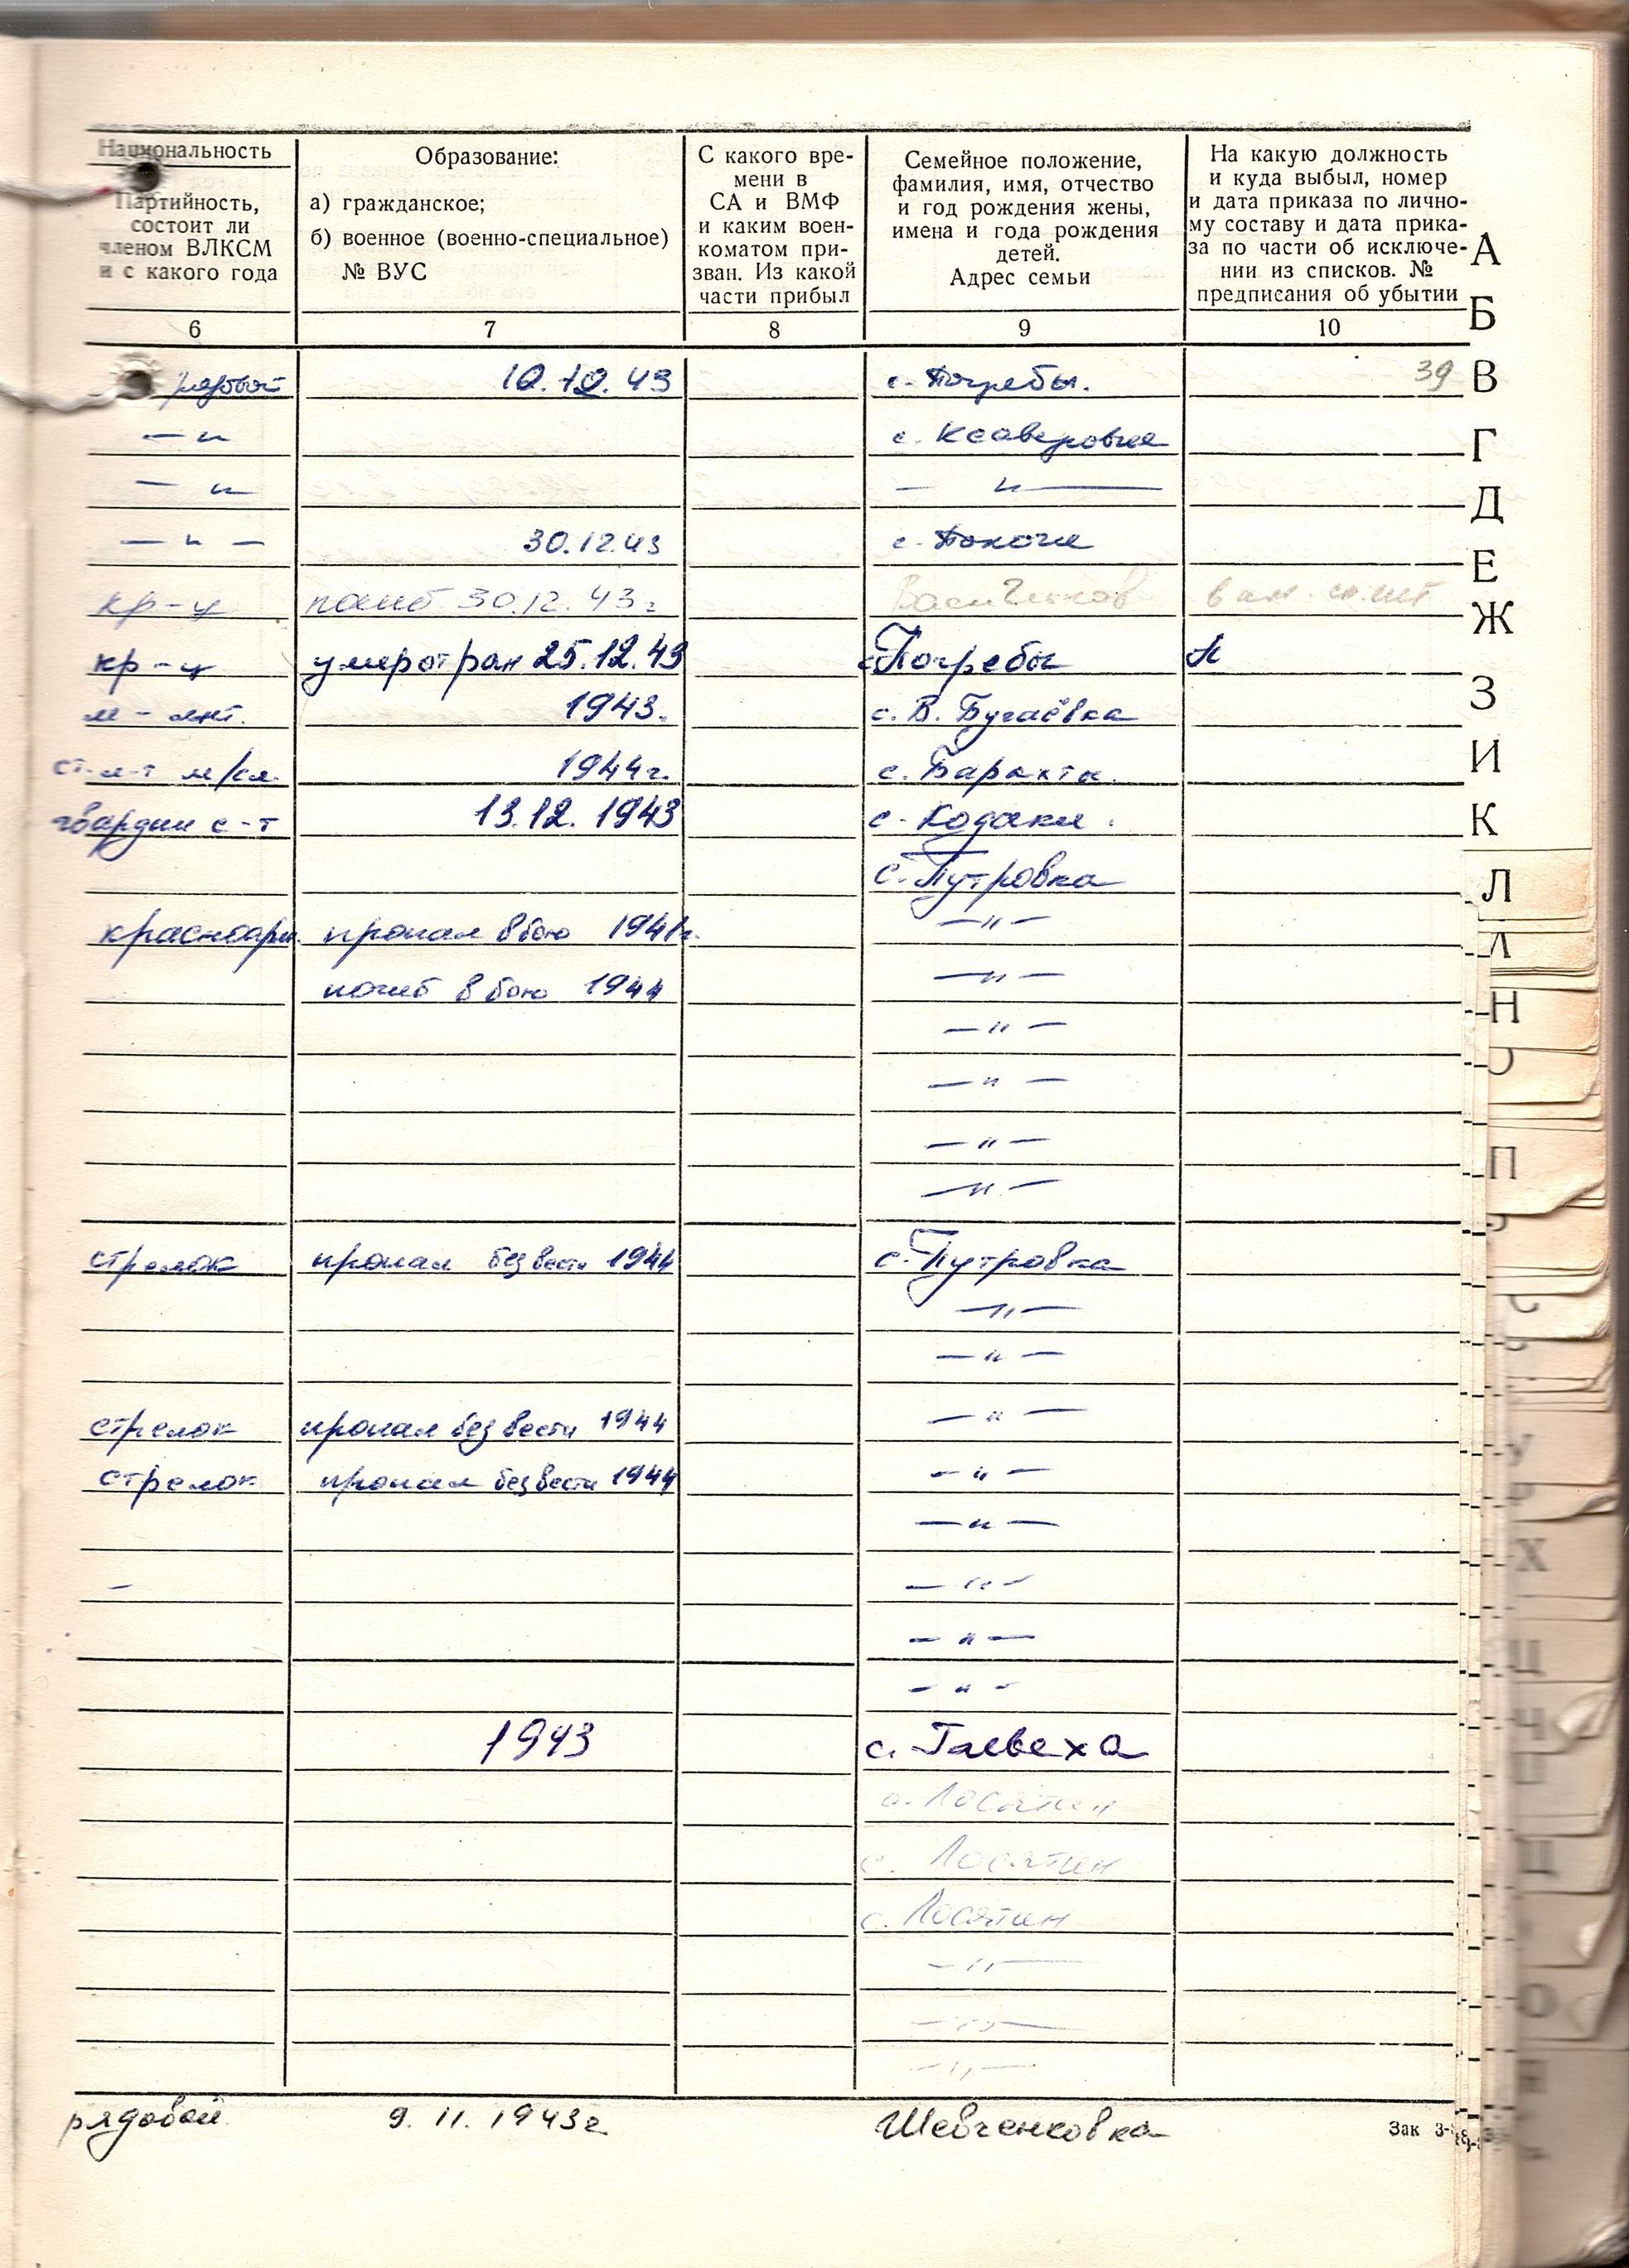 Национальность
Партийность,
состоит ли
членом ВЛКСМ
и с какого года
Образование:
а) гражданское;
б) военное (военно-специальное)
№ ВУС
С какого вре-
мени в
СА и ВМФ
и каким воен-
коматом при-
зван. Из какой
части прибыл
Семейное положение,
фамилия, имя, отчество
и год рождения жены,
имена и года рождения
детей.
Адрес семьи
На какую должность
и куда выбыл, номер
и дата приказа по лично-
му составу и дата прика-
за по части об исключе-
нии из списков. №
предписания об убытии
6 7 8 9 10
рядовой 10.12.43 с. Погребы. 39
— " с. Ксаверовка
— " — " —
— " — 30.12.43 с. Токоче
кр-ц погиб 30.12.43г Васильков
кр-ц умер от ран 25.12.43 с. Погребы
м-лнт. 1943. с. В. Бугаёвка
ст. л-т м/сл. 1944г. с. Барахты.
гвардии с-т 13.12.1943 с. Кодаки.
с. Путровка
красноарм. пропал в бою 1941г. — " —
погиб в бою 1944 — " —
— " —
— " —
— " —
— " —
стрелок пропал без вести 1944 с. Путровка
— " —
— " —
стрелок пропал без вести 1944 — " —
стрелок пропал без вести 1944 — " —
— " —
– — " —
— " —
— " —
1943 с. Глеваха
с. Лосятин
с. Лосятин
с. Лосятин
— " —
— " —
— " —
рядовой 9.11.1943г Шевченковка
Зак 3-
А
Б
В
Г
Д
Е
Ж
З
И
К
Л
Н
П
У
Х
Ц
Ч